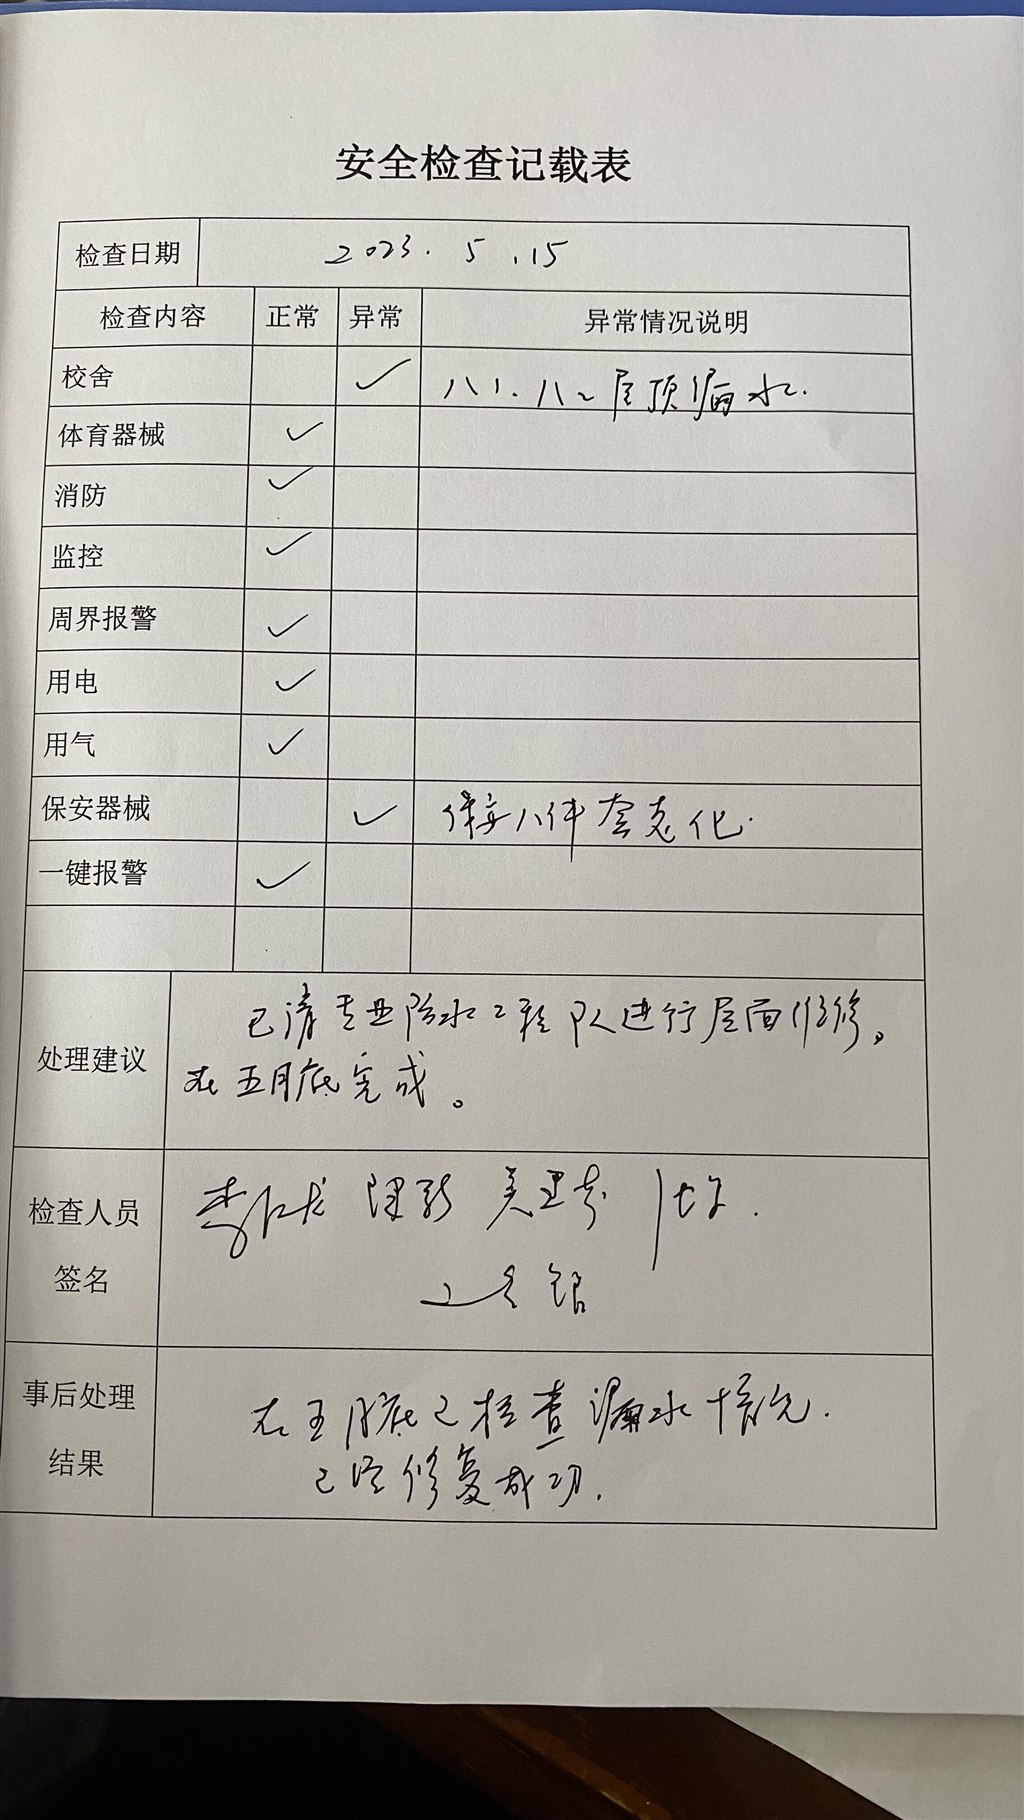 安全检查记载表
检查日期 2023.5.15
检查内容 正常 异常 异常情况说明
校舍 ✓ 八1.八2屋顶漏水.
体育器械 ✓
消防 ✓
监控 ✓
周界报警 ✓
用电 ✓
用气 ✓
保安器械 ✓ 保安八件套老化.
一键报警 ✓
处理建议
已请专业防水工程队进行屋面维修。
在五月底完成。
检查人员
签名
事后处理
结果
在五月底已检查漏水情况.
已经修复成功.